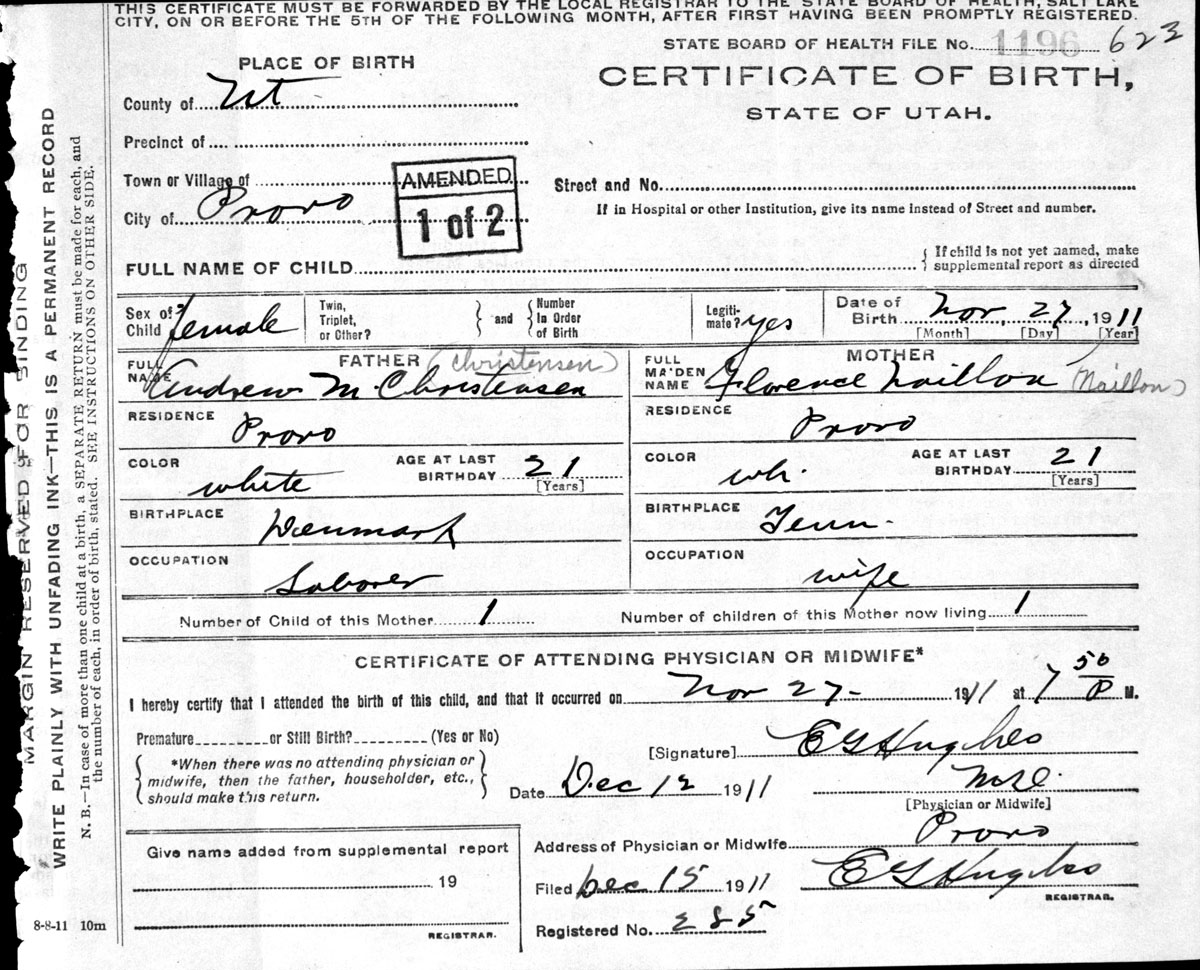 THIS CERTIFICATE MUST BE FORWARDED BY THE LOCAL REGISTRAR TO THE STATE BOARD OF HEALTH, SALT LAKE
CITY, ON OR BEFORE THE 5TH OF THE FOLLOWING MONTH, AFTER FIRST HAVING BEEN PROMPTLY REGISTERED.
STATE BOARD OF HEALTH FILE No. 1196 623
PLACE OF BIRTH
CERTIFICATE OF BIRTH,
STATE OF UTAH.
County of Ut
Precinct of
Town or Village of
City of Provo
AMENDED
1 of 2
Street and No.
If in Hospital or other Institution, give its name instead of Street and number.
FULL NAME OF CHILD
{ If child is not yet named, make
supplemental report as directed
Sex of Child female
Twin, Triplet, or Other?
} and {
Number In Order of Birth
Legiti-mate? yes
Date of Birth Nov, 27, 1911
[Month] [Day] [Year]
FATHER (Christensen)
FULL NAME Andrew M. Christensen
RESIDENCE Provo
COLOR white
AGE AT LAST BIRTHDAY 21
[Years]
BIRTHPLACE Denmark
OCCUPATION Laborer
MOTHER
FULL MAIDEN NAME Florence Naillon (Naillon)
RESIDENCE Provo
COLOR wh.
AGE AT LAST BIRTHDAY 21
[Years]
BIRTHPLACE Tenn.
OCCUPATION wife
Number of Child of this Mother 1
Number of children of this Mother now living 1
CERTIFICATE OF ATTENDING PHYSICIAN OR MIDWIFE*
I hereby certify that I attended the birth of this child, and that it occurred on Nov 27- 1911 at 7 50 P M.
Premature or Still Birth? (Yes or No)
{ *When there was no attending physician or
midwife, then the father, householder, etc.,
should make this return. }
[Signature] E G Hughes
Date Dec 12 1911
M.D.
[Physician or Midwife]
Address of Physician or Midwife Provo
Give name added from supplemental report
19
REGISTRAR.
Filed Dec 15 1911
E G Hughes
REGISTRAR.
Registered No. 285
8-8-11 10m
MARGIN RESERVED FOR BINDING
WRITE PLAINLY WITH UNFADING INK—THIS IS A PERMANENT RECORD
N. B.—In case of more than one child at a birth, a SEPARATE RETURN must be made for each, and
the number of each, in order of birth, stated. SEE INSTRUCTIONS ON OTHER SIDE.